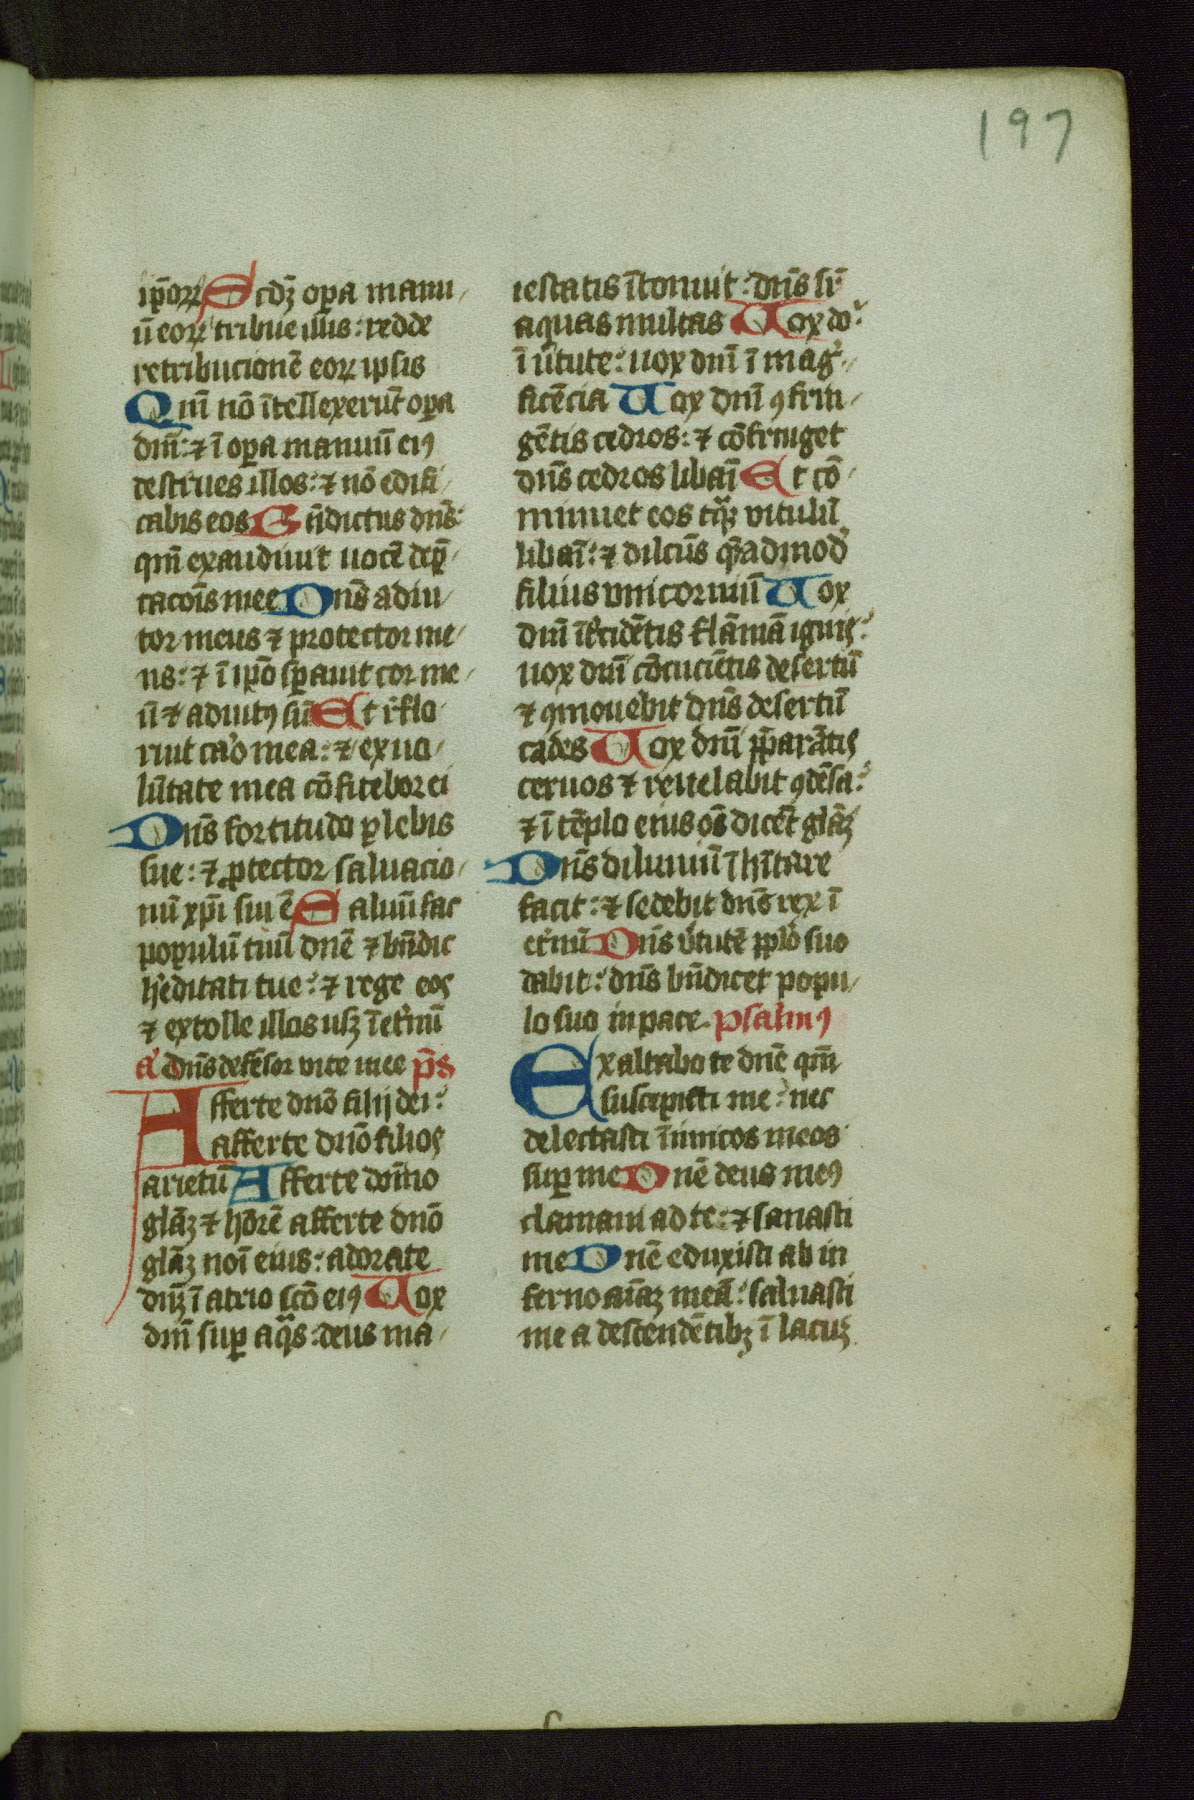 197
ip̄oꝝ Scd̄ꝫ oꝑa manu
ū eoꝝ tribue illis: redde
retribucionē eoꝝ ipsis
Qm̄ nō ītellexerūt oꝑa
dnī: ⁊ ī oꝑa manuū eiꝰ
destrues illos: ⁊ nō edifi
cabis eos Bn̄dictus dn̄s:
qm̄ exaudiuit uocē dep̄
cacōis mee Dn̄s adiu
tor meus ⁊ protector me
us: ⁊ ī ip̄o sꝑauit cor me
ū ⁊ adiutꝰ sū Et re͛flo
ruit caͦ mea: ⁊ ex uo
lūtate mea cōfitebor ei
Dn̄s fortitudo plebis
sue: ⁊ ꝓtector saluacio
nū xp̄i sui ē Saluū fac
populū tuū dn̄e ⁊ bn̄dic
he͛ditati tue: ⁊ rege eos
⁊ extolle illos usqꝫ ī et͛nū
a Dn̄s defēsor vite mee p̄s
Afferte dn̄o filij dei:
afferte dn̄o filios
arietū Afferte domīo
glāꝫ ⁊ hōrē afferte dn̄o
glāꝫ noī eius: adorate
dn̄ꝫ ī atrio scō eiꝰ Uox
dnī suꝑ aqͣs: deus ma
iestatis ītonuit: dn̄s sꝑ
aquas multas Uox do:
ī u͛tute: uox dnī ī mag͛
ficēcia Uox dnī ꝯfrin
gētis cedros: ⁊ cōfringet
dn̄s cedros libaī Et cō
minuet eos tqͣꝫ vitulū
libaī: ⁊ dilcūs qͣadmodū
filius vnicorniū Uox
dnī īt͛cidētis flāmā ignis:
uox dnī cōcuciētis desertū
⁊ ꝯmouebit dn̄s desertū
cades Uox dnī p̄parātis
ceruos ⁊ reuelabit ꝯdēsa:
⁊ ī tēplo eius oēs dicēt glāꝫ
Dn̄s diluuiū īhītare
facit: ⁊ sedebit dn̄s rex ī
et͛nū Dn̄s u͛tutē pplo suo
dabit: dn̄s bn̄dicet popu
lo suo in pace. psalmꝰ
Exaltabo te dn̄e qm̄
suscepisti me: nec
delectasti īimicos meos
suꝑ me Dn̄e deus meꝰ
clamaui ad te: ⁊ sanasti
me Dn̄e eduxisti ab in
ferno aīaꝫ meā: saluasti
me a descendētibꝫ ī lacuꝫ